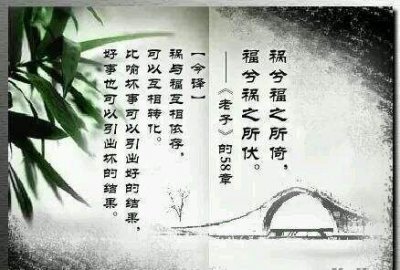 祸兮福之所倚，
福兮祸之所伏。
——《老子》的58章
【今译】
祸与福互相依存，
可以互相转化。
比喻坏事可以引出好的结果，
好事也可以引出坏的结果。